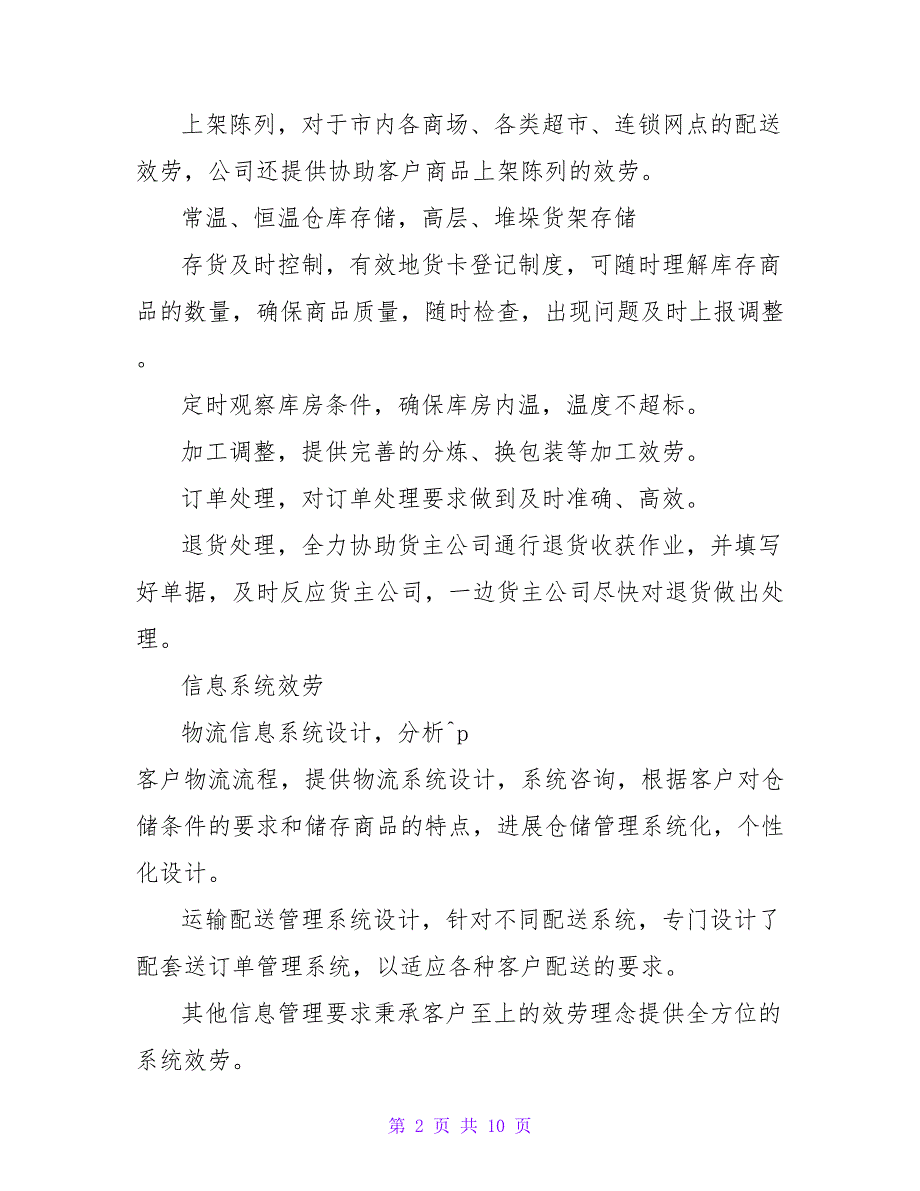 上架陈列，对于市内各商场、各类超市、连锁网点的配送
效劳，公司还提供协助客户商品上架陈列的效劳。
常温、恒温仓库存储，高层、堆垛货架存储
存货及时控制，有效地货卡登记制度，可随时理解库存商
品的数量，确保商品质量，随时检查，出现问题及时上报调整
。
定时观察库房条件，确保库房内温，温度不超标。
加工调整，提供完善的分炼、换包装等加工效劳。
订单处理，对订单处理要求做到及时准确、高效。
退货处理，全力协助货主公司通行退货收获作业，并填写
好单据，及时反应货主公司，一边货主公司尽快对退货做出处
理。
信息系统效劳
物流信息系统设计，分析^p
客户物流流程，提供物流系统设计，系统咨询，根据客户对仓
储条件的要求和储存商品的特点，进展仓储管理系统化，个性
化设计。
运输配送管理系统设计，针对不同配送系统，专门设计了
配套送订单管理系统，以适应各种客户配送的要求。
其他信息管理要求秉承客户至上的效劳理念提供全方位的
系统效劳。
第 2 页 共 10 页